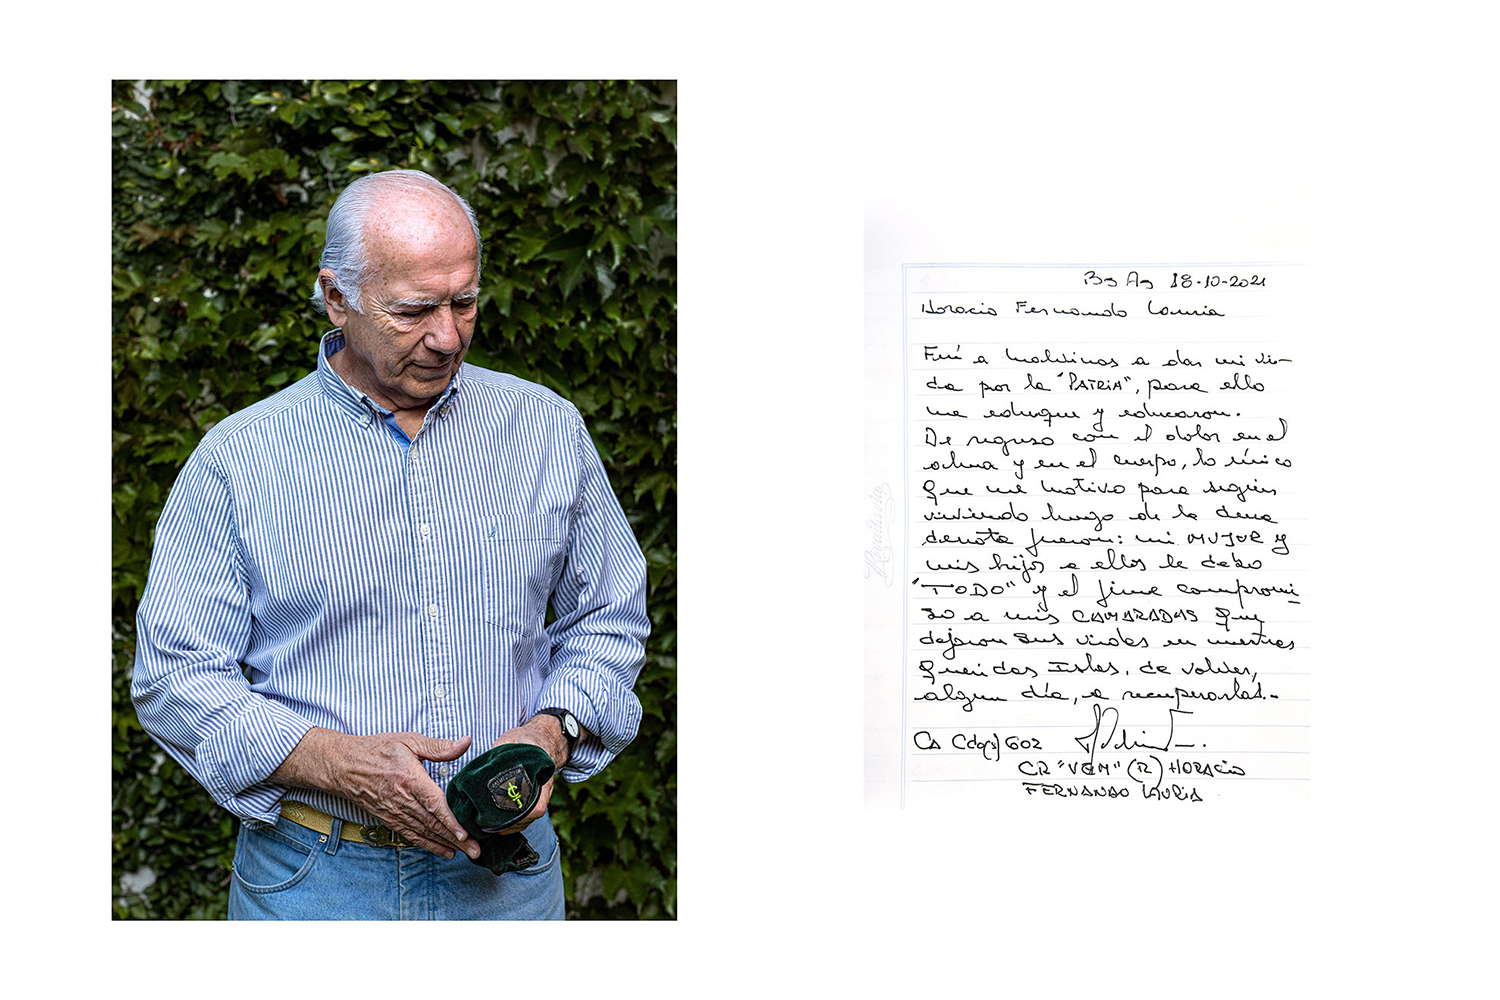 Bs As 18-10-2021
Horacio Fernando Lauria
Fuí a Malvinas a dar mi vi-
da por la "PATRIA", para ello
me eduque y educaron.
De regreso con el dolor en el
alma y en el cuerpo, lo único
que me motivo para seguir
viviendo luego de la dura
derrota fueron: mi MUJER y
mis hijos a ellos le debo
"TODO" y el firme compromi-
so a mis CAMARADAS que
dejaron sus vidas en nuestras
queridas Islas, de volver,
algun día, a recuperarlas.-
Ca Cdo(s) 602
CR "VGM" (R) HORACIO
FERNANDO LAURIA